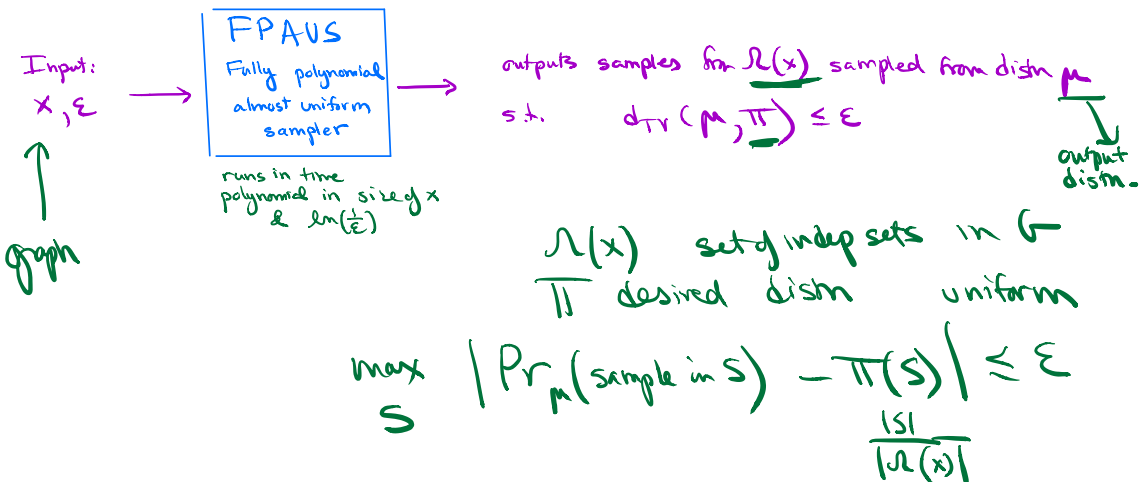 Input:
x, ε
FPAUS
Fully polynomial
almost uniform
sampler
runs in time
polynomial in size of x
& ln(1/ε)
outputs samples from Ω(x) sampled from distn μ
s.t. d_TV(μ, π) ≤ ε
output
distn.
graph
Ω(x) set of indep sets in G
π desired distn uniform
max | Pr_μ(sample in S) − π(S) | ≤ ε
S
|S|
|Ω(x)|